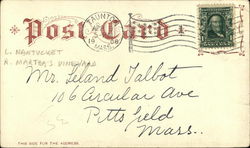 TAUNTON
MASS.
Post Card
L. NANTUCKET
R. MARTHA'S VINEYARD
Mr. Leland Talbot
106 Circular Ave
Pittsfield
Mass.
THIS SIDE FOR THE ADDRESS.